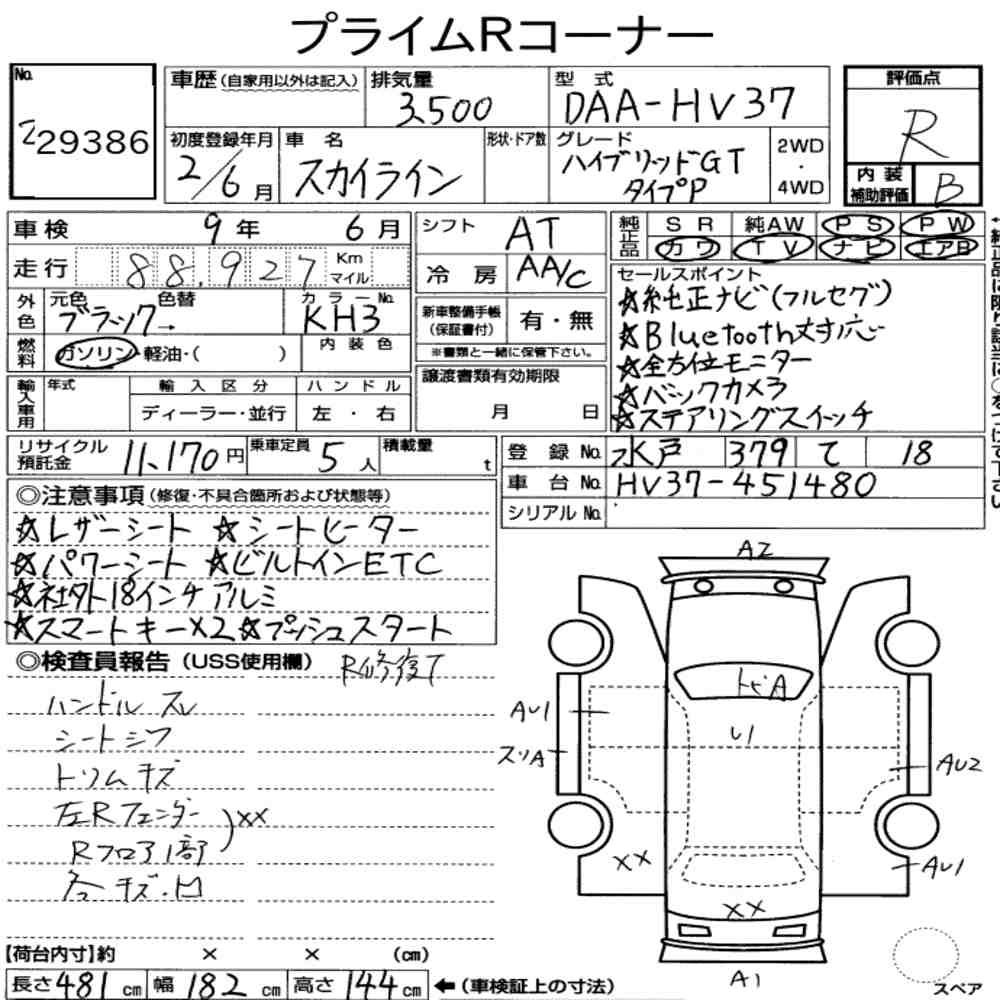 プライムRコーナー
No.
229386
車歴(自家用以外は記入) 排気量 3,500
型式 DAA-HV37
初度登録年月 2/6月
車名 スカイライン
形状・ドア数
グレード ハイブリッドGT タイプP
2WD・4WD
評価点 R
内装補助評価 B
車検 9年 6月
走行 88,927 Km マイル
シフト AT
冷房 AA/C
純正品 SR 純AW PS PW
カワ TV ナビ エアB
外色 元色 色替 ブラック→
カラーNo. KH3
内装色
燃料 ガソリン・軽油・( )
新車整備手帳(保証書付) 有・無
※書類と一緒に保管下さい。
セールスポイント
☆純正ナビ(フルセグ)
☆Bluetooth対応
☆全方位モニター
☆バックカメラ
☆ステアリングスイッチ
輸入車用 年式 輸入区分 ハンドル
ディーラー・並行 左・右
譲渡書類有効期限
月 日
リサイクル預託金 11,170円
乗車定員 5人
積載量 t
登録No. 水戸 379 て 18
車台No. HV37-451480
シリアルNo.
◎注意事項(修復・不具合箇所および状態等)
☆レザーシート ☆シートヒーター
☆パワーシート ☆ビルトインETC
☆社外18インチアルミ
☆スマートキー×2☆プッシュスタート
◎検査員報告(USS使用欄) R修復了
ハンドルスレ
シートシワ
トリムキズ
左Rフェンダー
Rフロア1部 )××
各キズ・凹
A2
トビA
U1
AU1
スリA
AU2
AU1
××
××
A1
スペア
【荷台内寸】約 × × (cm)
長さ481cm 幅182cm 高さ144cm ←(車検証上の寸法)